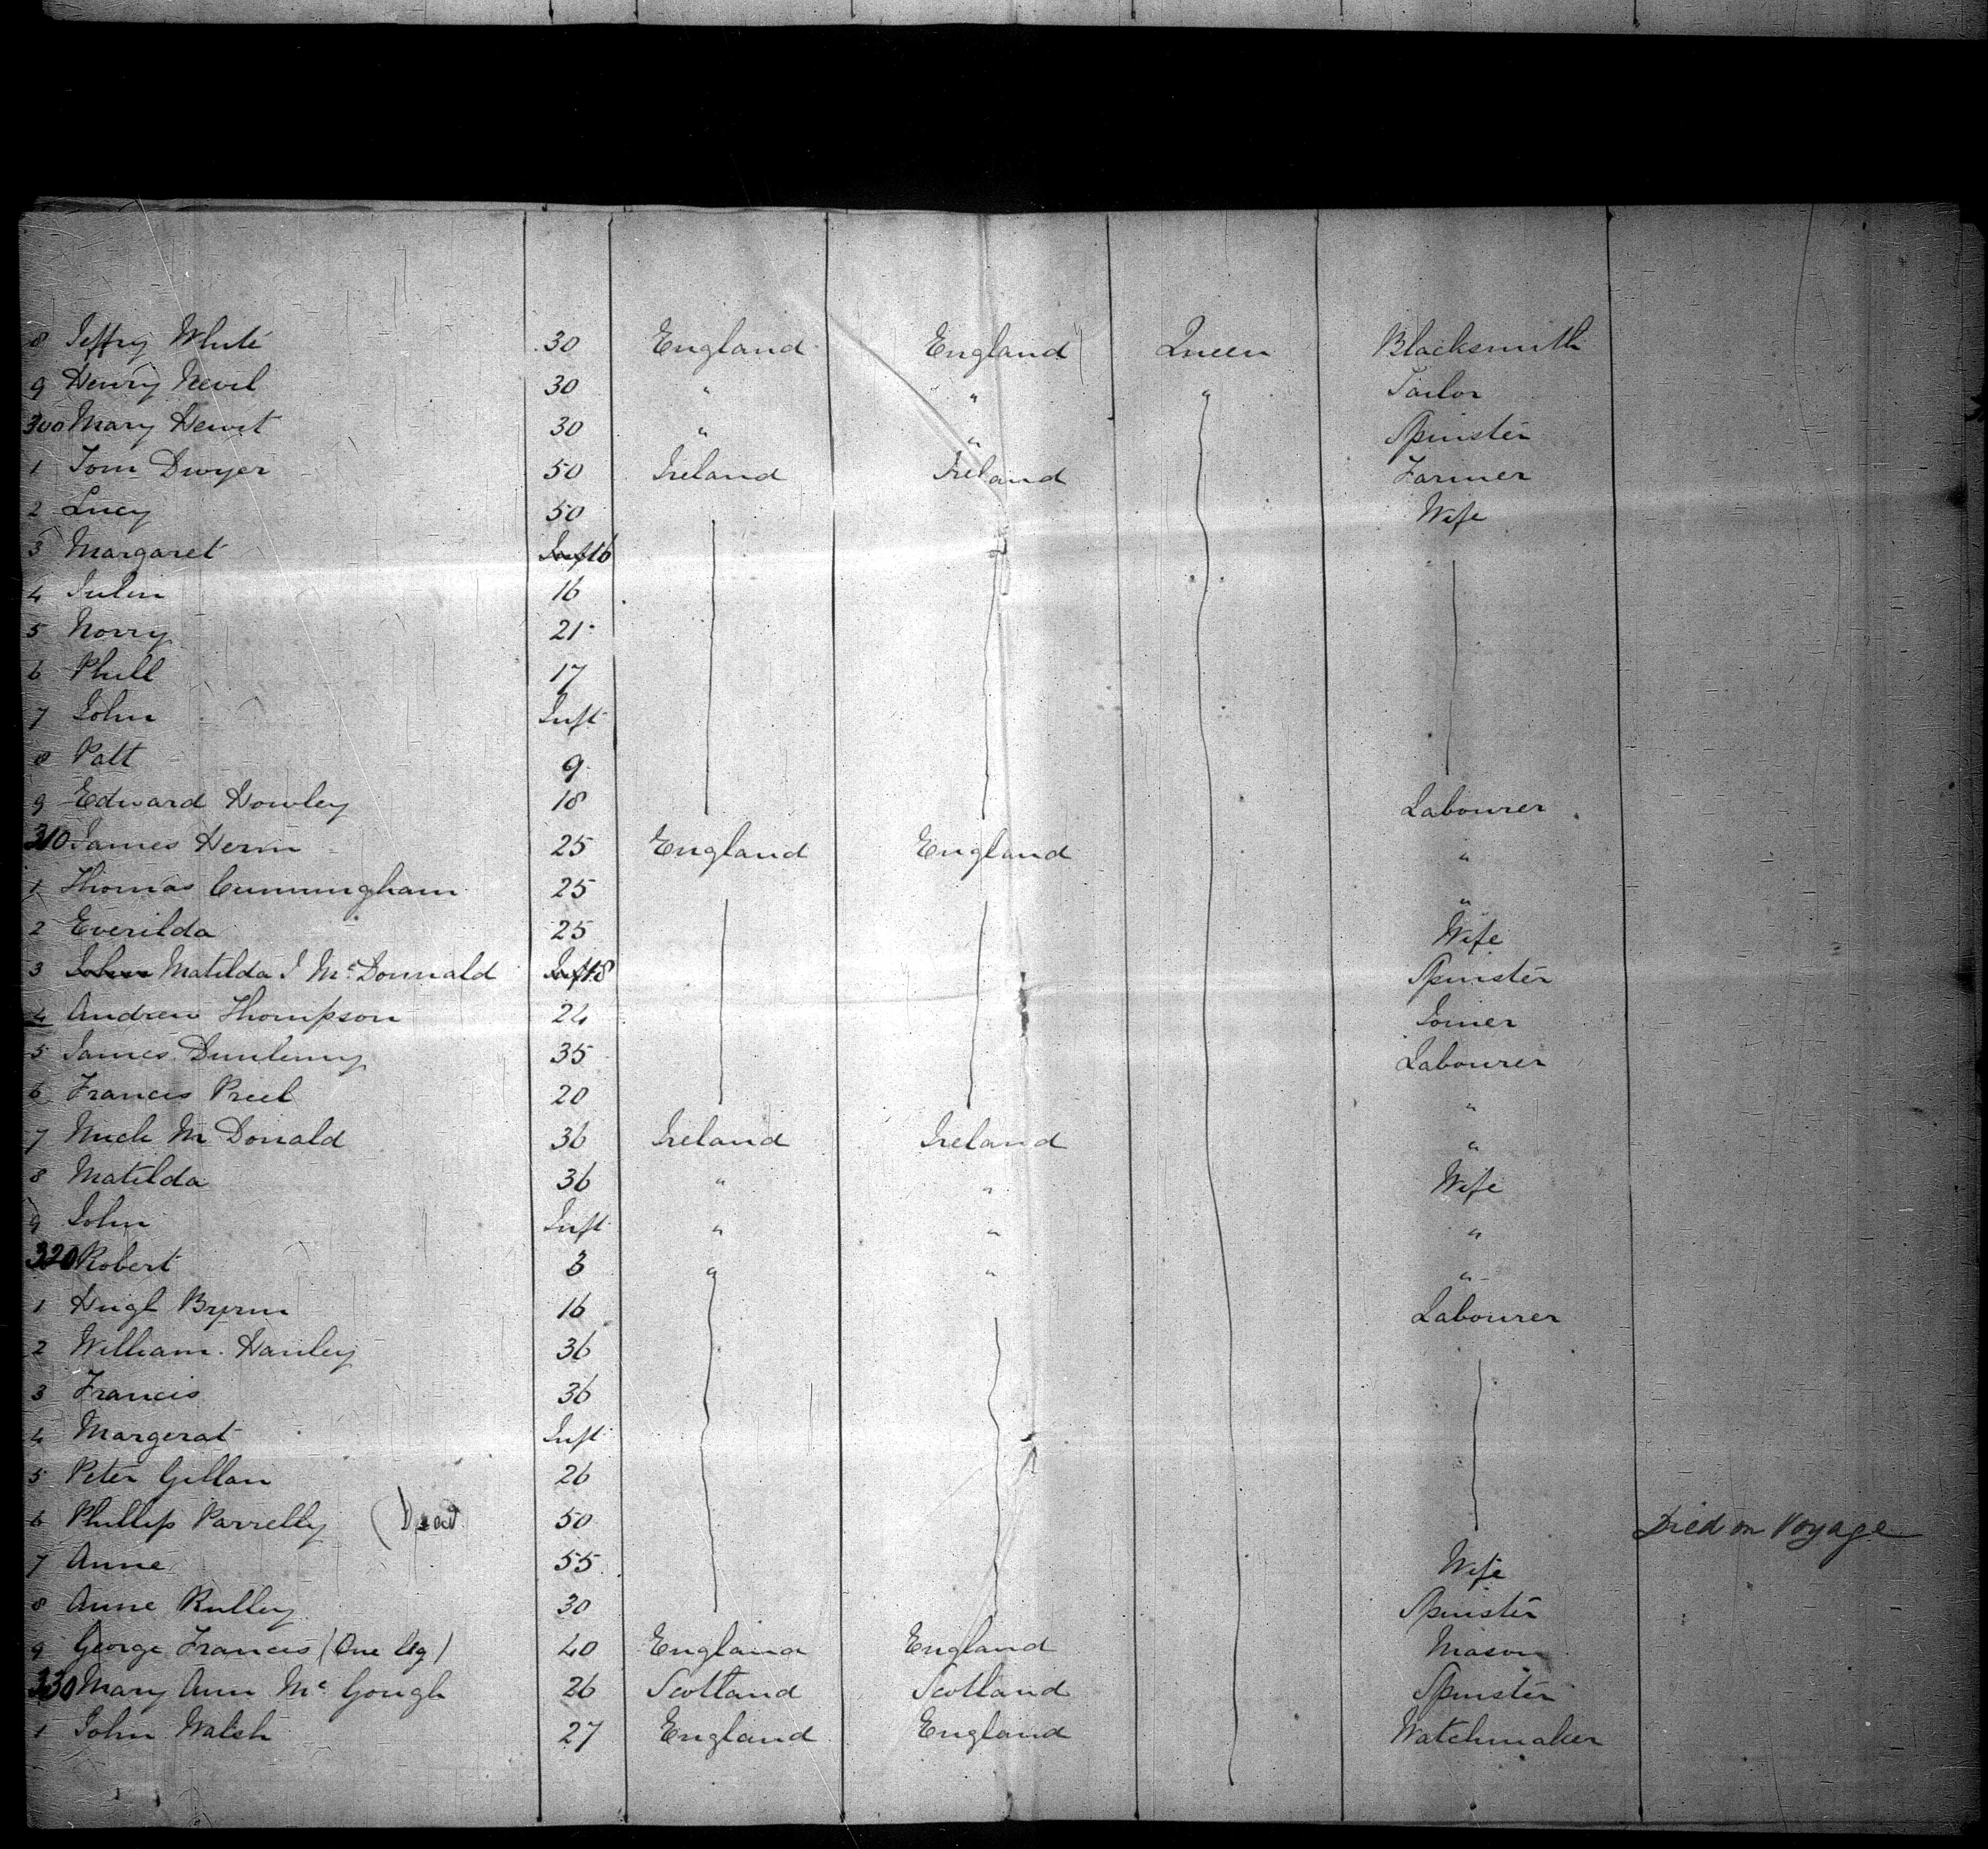 8 Jeffry White 30 England England Queen Blacksmith
9 Henry Nevil 30 " " " Tailor
300 Mary Hewit 30 " " Spinster
1 Tom Dwyer 50 Ireland Ireland Farmer
2 Lucy 50 Wife
3 Margaret 16
4 Julia 16
5 Norry 21
6 Phill 17
7 John Inft
8 Patt 9
9 Edward Howley 18 Labourer
310 James 25 England England "
1 Thomas Cunningham 25 "
2 Everilda 25 Wife
3 John Matilda J McDonnald Inft 18 Spinster
4 Andrew Thompson 24 Joiner
5 James 35 Labourer
6 Francis 20 "
7 McDonald 36 Ireland Ireland "
8 Matilda 36 " " Wife
9 John Inft " " "
320 Robert 3 " " "
1 Hugh Byrne 16 Labourer
2 William Hanley 36
3 Francis 36
4 Margerat Inft
5 Peter Gillan 26
6 Phillip Parrelly (Dead 50 Died on Voyage
7 Anne 55 Wife
8 Anne 30 Spinster
9 George Francis (One leg) 40 England England Mason
330 Mary Ann Mc Gough 26 Scotland Scotland Spinster
1 John Walsh 27 England England Watchmaker